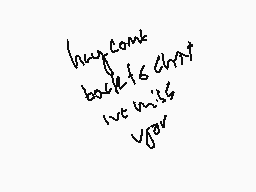 hay come
back to chat
we miss
you